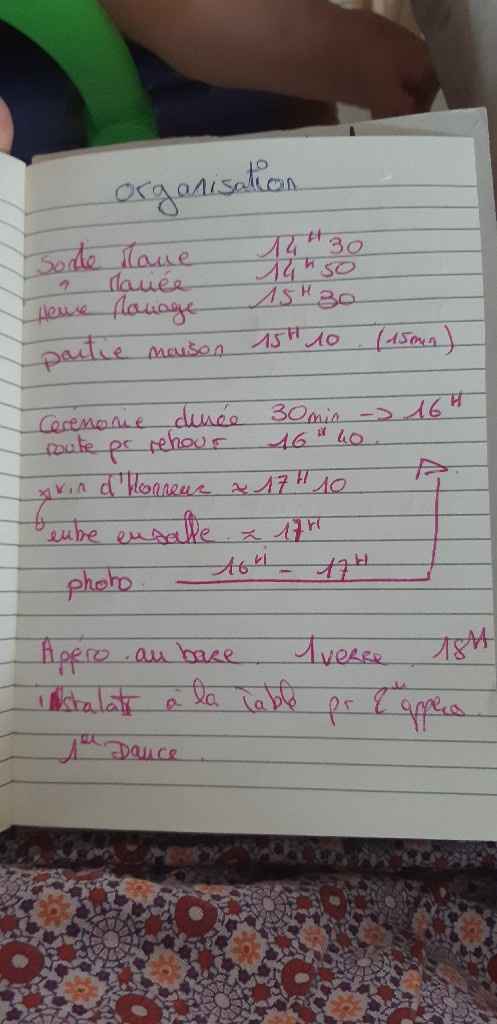 organisation
Sortie Marié 14H30
" Mariée 14H50
Heure Mariage 15H30
partie maison 15H10 (15min)
Cérémonie durée 30min -> 16H
route pr retour 16H40
vin d'Honneur ≈ 17H10
entre en salle ≈ 17H
photo 16H - 17H
Apéro au bare 1 verre 18H
instalat à la Table pr 2" appero
1er Dance